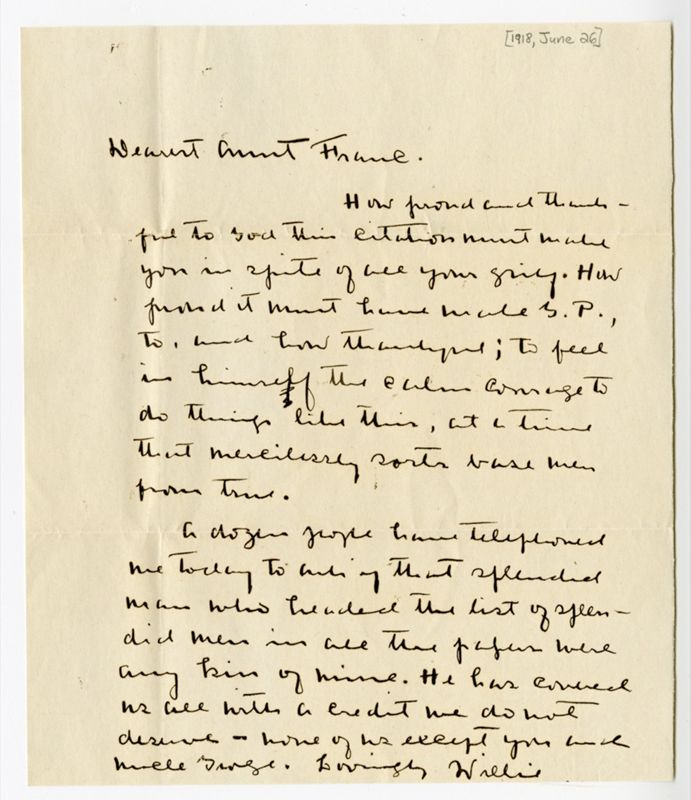 [1918, June 26]
Dearest Aunt Franc.
How proud and thank-
ful to God this citation must make
you in spite of all your grief. How
proud it must have made G. P.,
to, and how thankful; to feel
in himself the calm courage to
do things like this, at a time
that mercilessly sorts base men
from true.
A dozen people have telephoned
me today to ask if that splendid
man who headed the list of splen-
did men in all the papers were
any kin of mine. He has covered
us all with a credit we do not
deserve - none of us except you and
Uncle George. Lovingly Willie